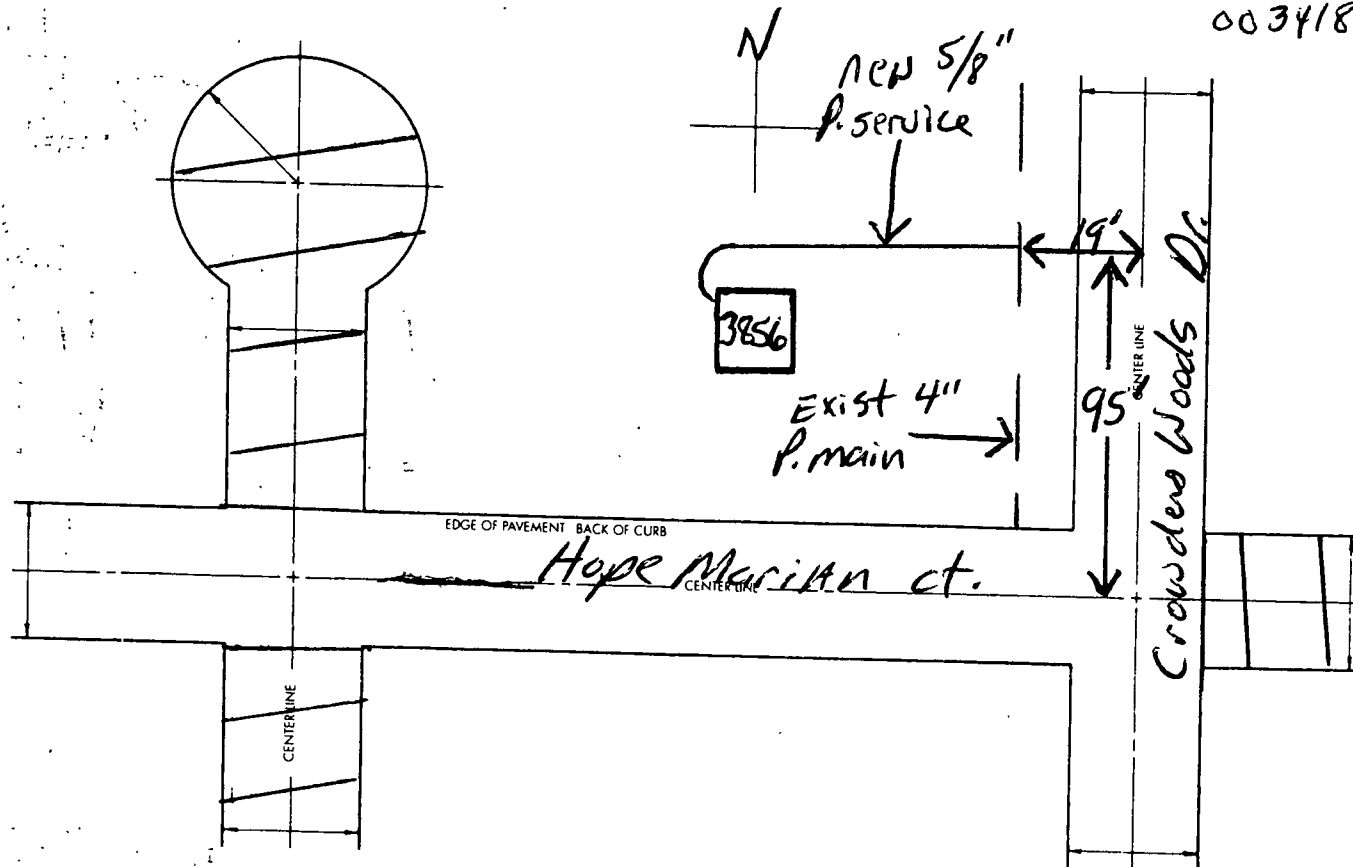 003418
N
new 5/8"
P. service
19'
3856
Exist 4"
P. main
95'
CENTER LINE
Crowders Woods Dr.
EDGE OF PAVEMENT BACK OF CURB
Hope Marian ct.
CENTER LINE
CENTER LINE